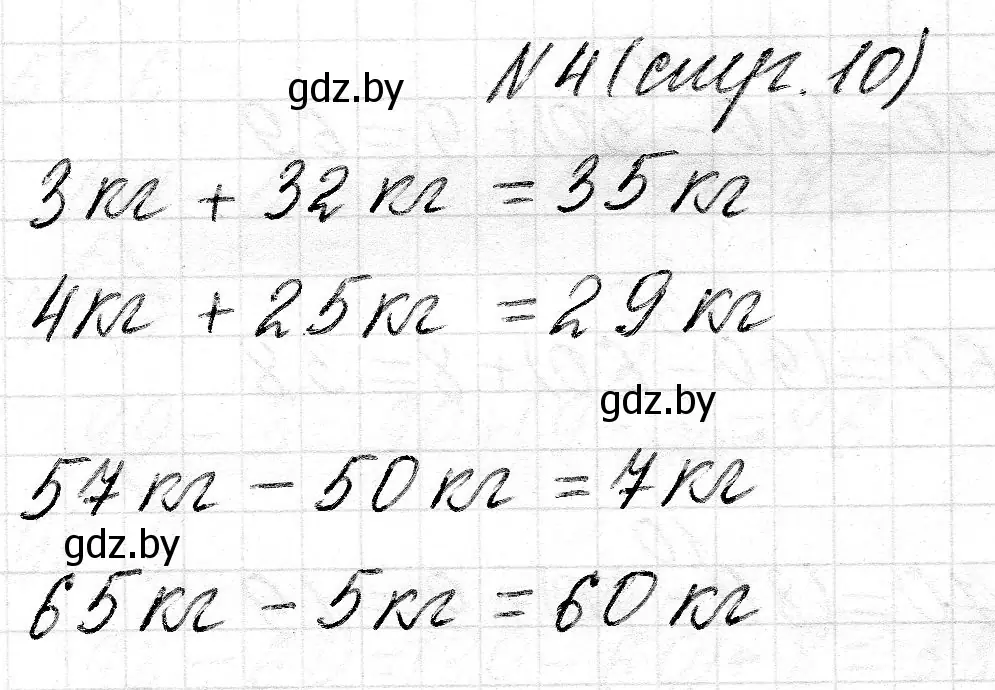 N 4 (стр. 10)
gdz.by
3 кг + 32 кг = 35 кг
4 кг + 25 кг = 29 кг
gdz.by
57 кг - 50 кг = 7 кг
gdz.by
65 кг - 5 кг = 60 кг